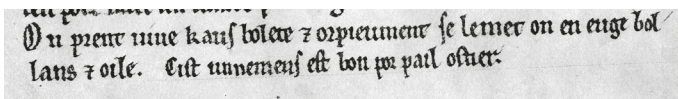 On prent vive kaus bolete ⁊ orpieument se le met on en euge bol
lans ⁊ oile. Cist unnemens est bon por pail oster.